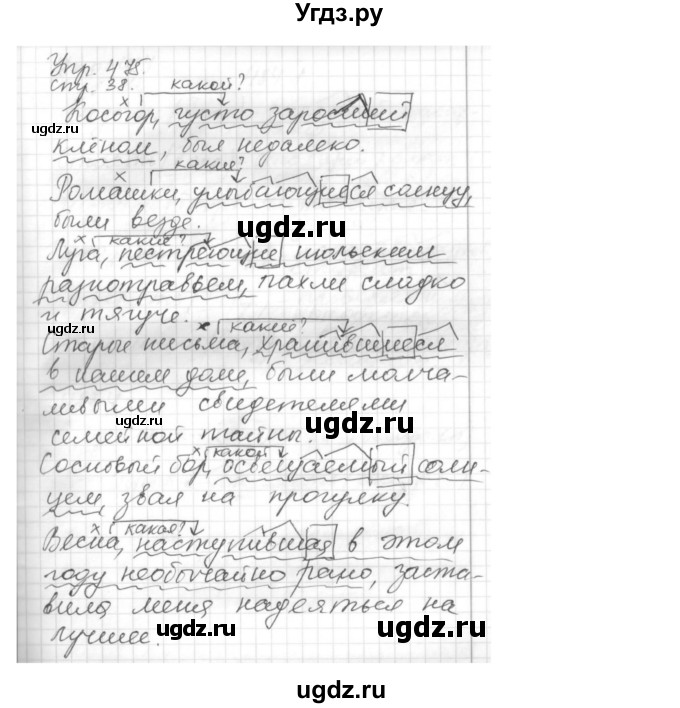 Угдз.ру
Упр. 475.
стр. 38. какой?
Косогор, густо заросший
ugdz.ru
клёном, был недалеко.
какие?
Ромашки, улыбающиеся солнцу,
были везде.
ugdz.ru
какие?
Луга, пестреющие июльским
разнотравьем, пахли сладко
и тягуче.
ugdz.ru
какие?
Старые письма, хранившиеся
в нашем доме, были молча-
ливыми свидетелями
семейной тайны.
ugdz.ru
какой
Сосновый бор, освещаемый солн-
цем звал на прогулку.
какая?
Весна, наступившая в этом
году необычайно рано, заста-
вила меня надеяться на
лучшее.
ugdz.ru
ugdz.ru
ugdz.ru